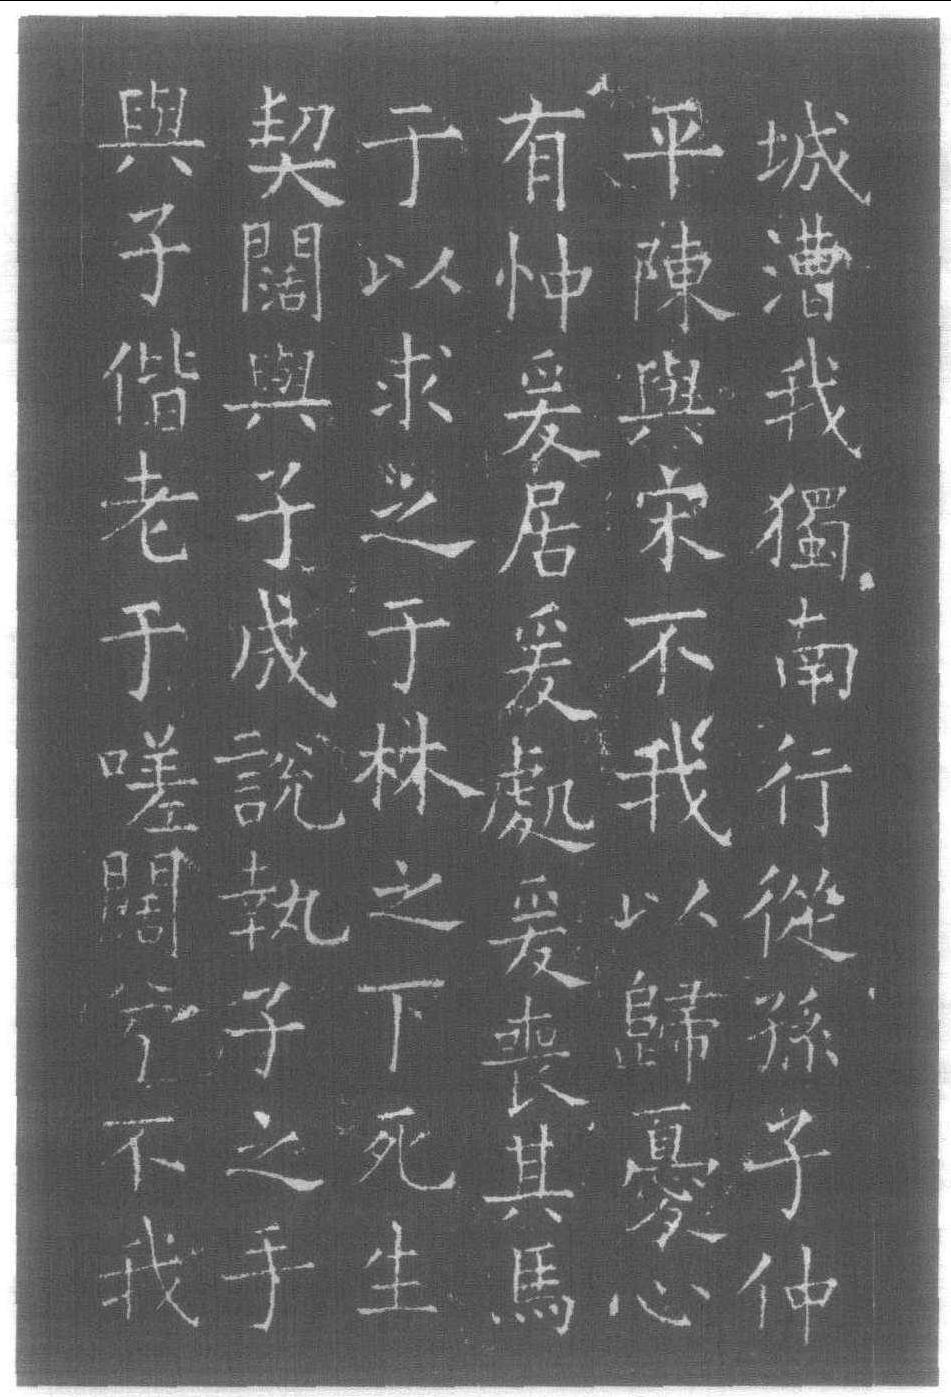 城漕我獨南行從孫子仲
平陳與宋不我以歸憂心
有忡爰居爰處爰喪其馬
于以求之于林之下死生
契闊與子成說執子之手
與子偕老于嗟闊兮不我